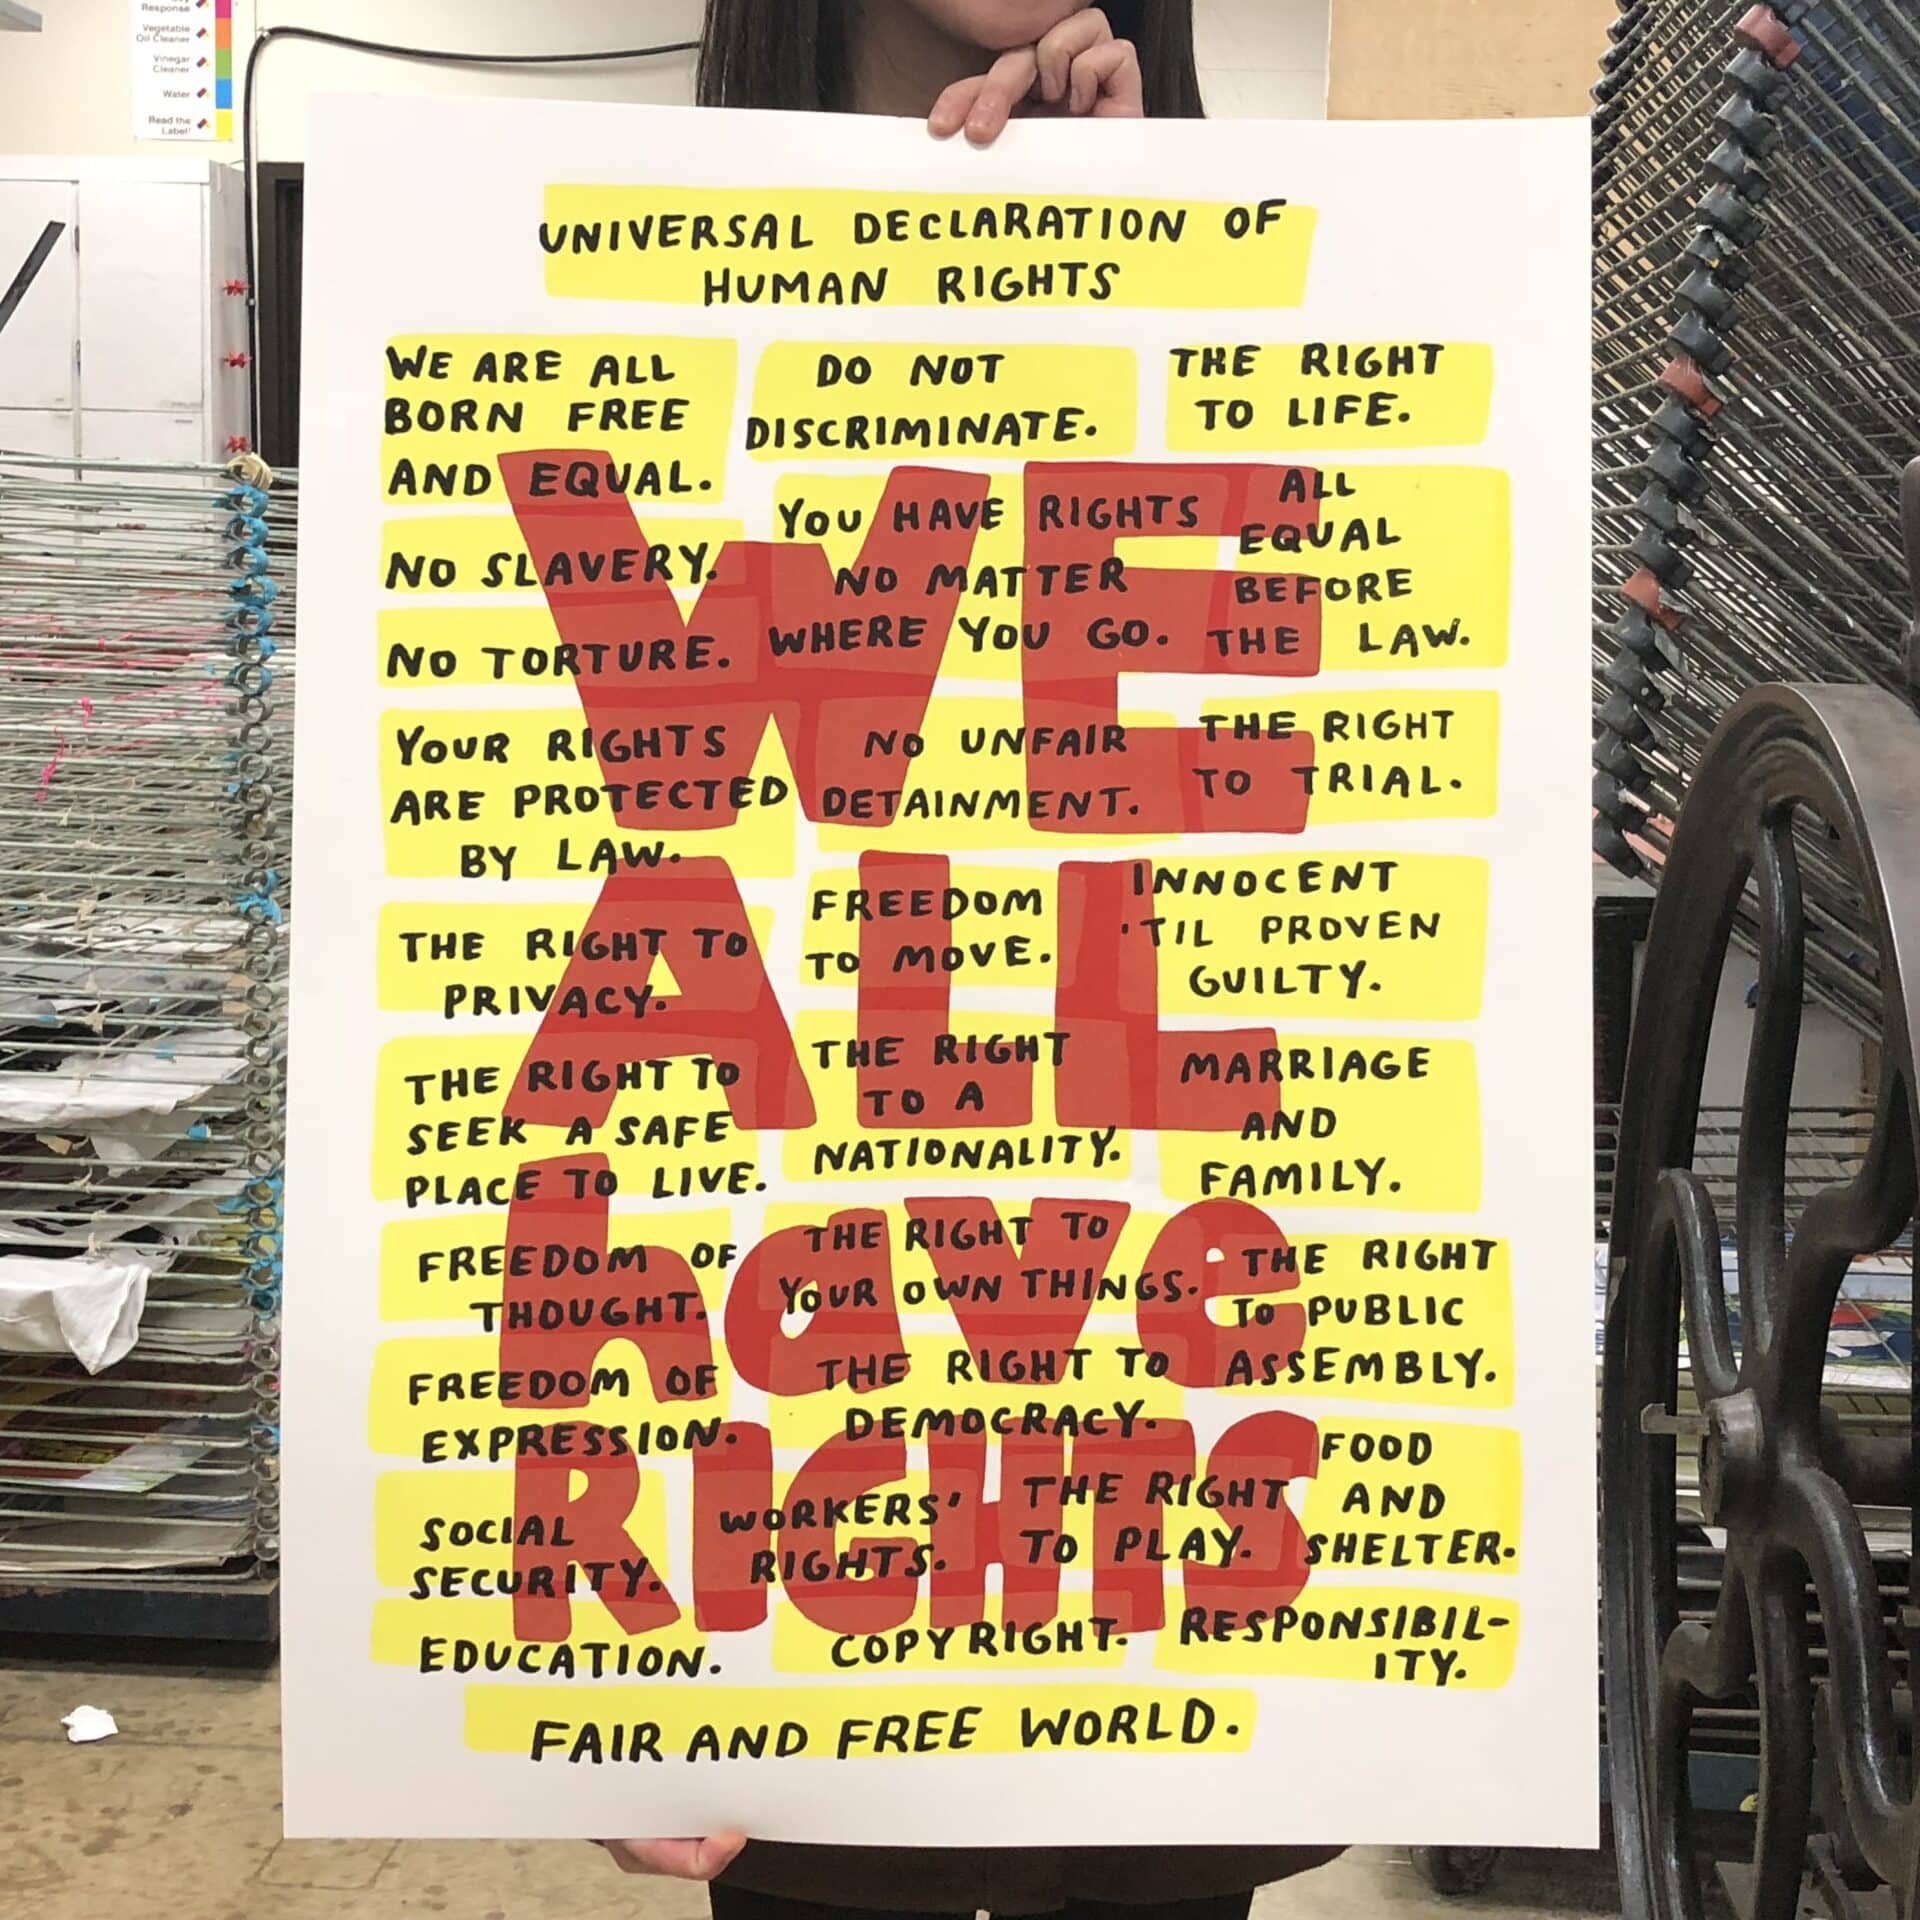 Response
Vegetable
Oil Cleaner
Vinegar
Cleaner
Water
Read the
Label!
UNIVERSAL DECLARATION OF
HUMAN RIGHTS
WE ARE ALL
BORN FREE
AND EQUAL.
DO NOT
DISCRIMINATE.
THE RIGHT
TO LIFE.
NO SLAVERY.
YOU HAVE RIGHTS
NO MATTER
WHERE YOU GO.
ALL
EQUAL
BEFORE
THE LAW.
NO TORTURE.
YOUR RIGHTS
ARE PROTECTED
BY LAW.
NO UNFAIR
DETAINMENT.
THE RIGHT
TO TRIAL.
THE RIGHT TO
PRIVACY.
FREEDOM
TO MOVE.
INNOCENT
'TIL PROVEN
GUILTY.
THE RIGHT TO
SEEK A SAFE
PLACE TO LIVE.
THE RIGHT
TO A
NATIONALITY.
MARRIAGE
AND
FAMILY.
FREEDOM OF
THOUGHT.
THE RIGHT TO
YOUR OWN THINGS.
THE RIGHT
TO PUBLIC
ASSEMBLY.
FREEDOM OF
EXPRESSION.
THE RIGHT TO
DEMOCRACY.
SOCIAL
SECURITY.
WORKERS'
RIGHTS.
THE RIGHT
TO PLAY.
FOOD
AND
SHELTER.
EDUCATION.
COPYRIGHT.
RESPONSIBIL-
ITY.
FAIR AND FREE WORLD.
WE
ALL
have
RIGHTS